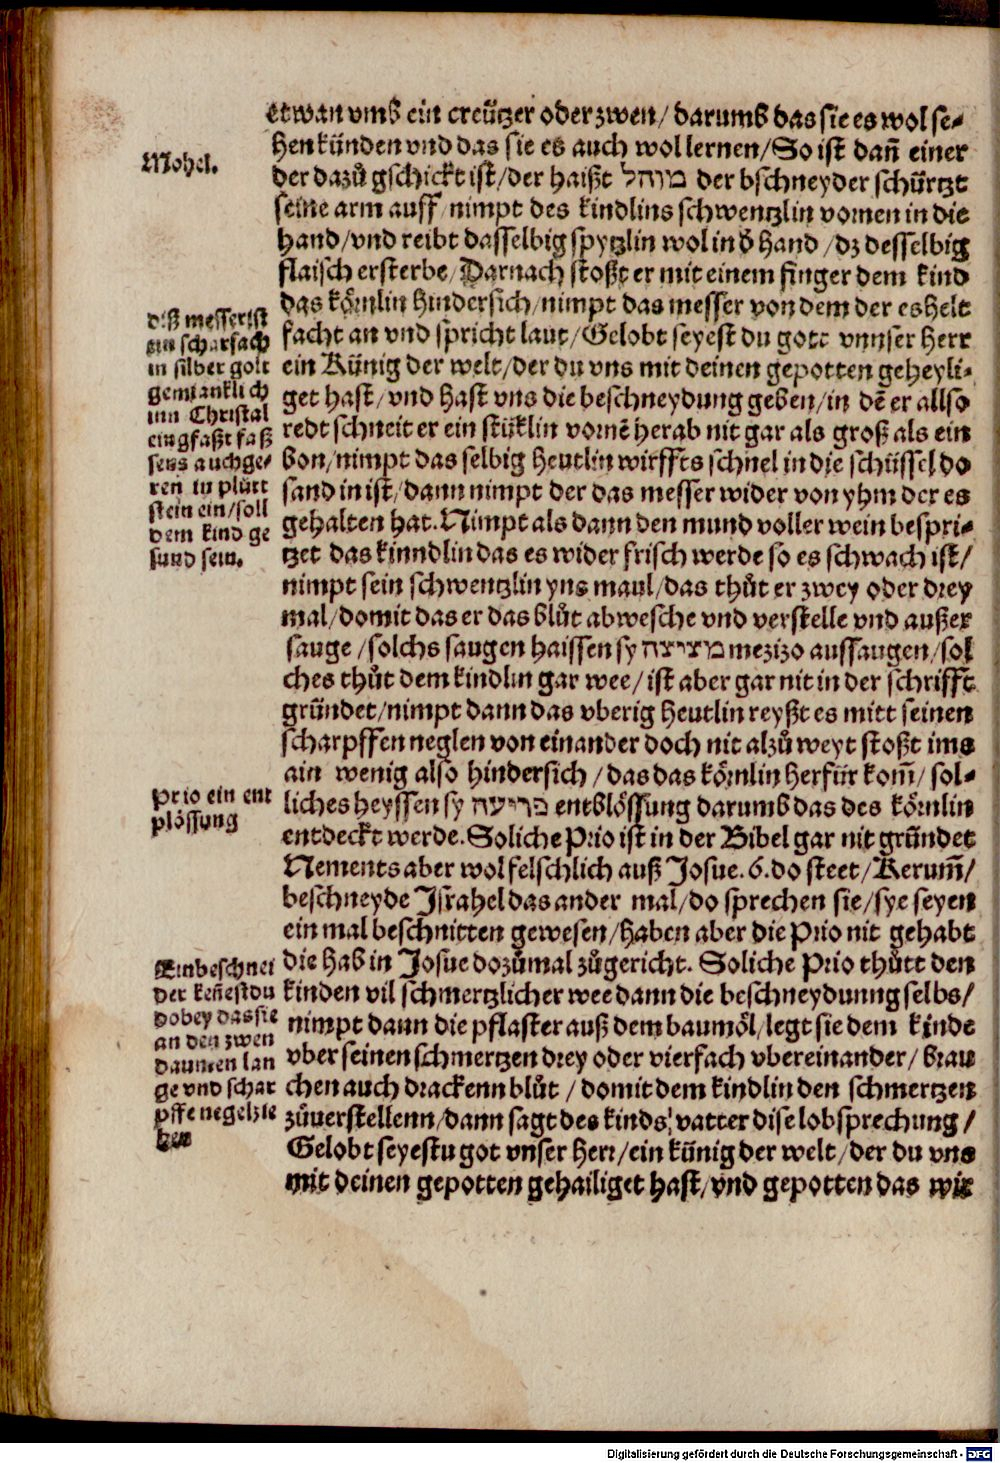 etwan vmb ein creützer oder zwen / darumb das sie es wol se-
hen künden vnd das sie es auch wol lernen / So ist dañ einer
Mohel.
der dazů gschickt ist / der haißt מוהל der bschneyder schürtzt
seine arm auff / nimpt des kindlins schwentzlin vornen in die
hand / vnd reibt dasselbig spytzlin wol in d' hand / dz desselbig
flaisch ersterbe / Darnach stoßt er mit einem finger dem kind
das körnlin hindersich / nimpt das messer von dem der es helt
facht an vnd spricht laut / Gelobt seyest du gott vnnser herr
ein Künig der welt / der du vns mit deinen gepotten geheyli-
get hast / vnd hast vns die beschneydung geben / in dē er allso
redt schneit er ein stüklin vornē herab nit gar als groß als ein
bon / nimpt das selbig heutlin wirffts schnel in die schüssel do
sand in ist / dann nimpt der das messer wider von yhm der es
gehalten hat. Nimpt als dann den mund voller wein bespri-
tzet das kinndlin das es wider frisch werde so es schwach ist /
diß messer ist
ein scharsach
in silber golt
inn Christal
eingfaßt faß
sens auch ge-
ren in plütt
stein ein / soll
dem kind ge
sund sein.
nimpt sein schwentzlin yns maul / das thůt er zwey oder drey
mal / domit das er das blůt abwesche vnd verstelle vnd außer
sauge / solchs saugen haissen sy מציצה mezizo aussaugen / sol
ches thůt dem kindlin gar wee / ist aber gar nit in der schrifft
gründet / nimpt dann das vberig heutlin reyßt es mitt seinen
scharpffen neglen von einander doch nit alzů weyt stoßt ims
ain wenig also hindersich / das das körnlin herfür kom̃ / sol-
liches heyssen sy בריעה entblössung darumb das des körnlin
Prio ein ent
plössung
entdeckt werde. Soliche Prio ist in der Bibel gar nit gründet
Nements aber wol felschlich auß Josue. 6. do steet / Kerum̃ /
beschneyde Jsrahel das ander mal / do sprechen sie / sye seyen
ein mal beschnitten gewesen / haben aber die Prio nit gehabt
die hab in Josue dozůmal zůgericht. Soliche Prio thůtt den
kinden vil schmertzlicher wee dann die beschneydunng selbs /
nimpt dann die pflaster auß dem baumöl / legt sie dem kinde
vber seinen schmertzen drey oder vierfach vbereinander / brau
chen auch drackenn blůt / domit dem kindlin den schmertzen
zůuerstellenn / dann sagt des kinds vatter dise lobsprechung /
Einbeschnei
der keñest du
dobey das sie
an den zwen
daumen lan
ge vnd schar
pffe negel zie
hen
Gelobt seyestu got vnser herr / ein künig der welt / der du vns
mit deinen gepotten gehailiget hast / vnd gepotten das wir
Digitalisierung gefördert durch die Deutsche Forschungsgemeinschaft - DFG